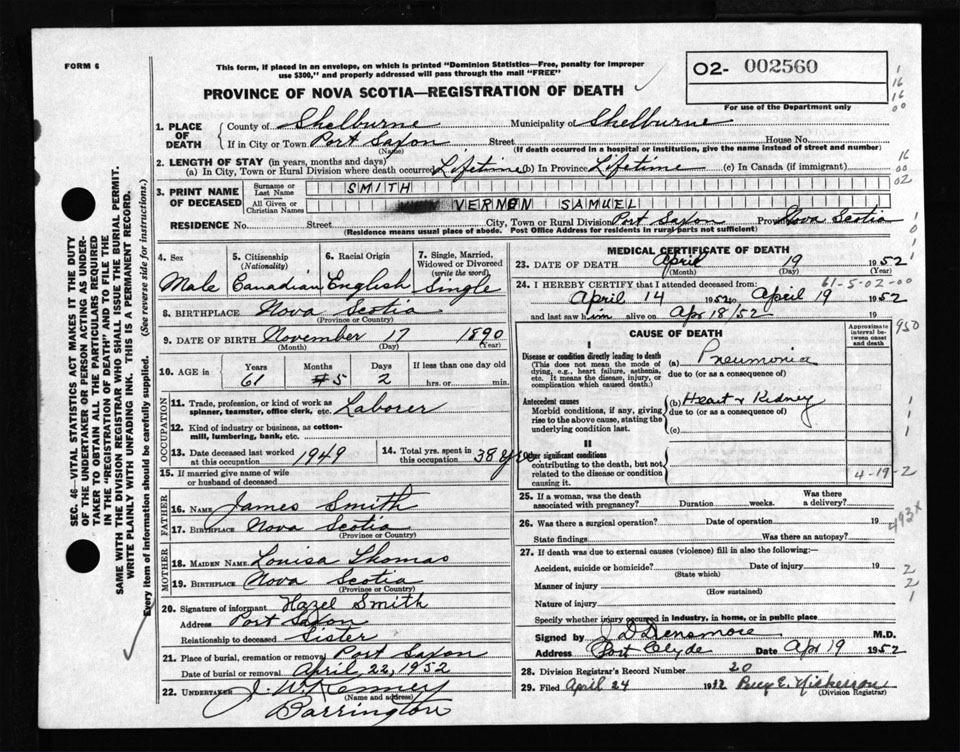 FORM 6
This form, if placed in an envelope, on which is printed "Dominion Statistics—Free, penalty for improper
use $300," and properly addressed will pass through the mail "FREE"
PROVINCE OF NOVA SCOTIA—REGISTRATION OF DEATH
02- 002560
For use of the Department only
1
16
16
00
1. PLACE OF DEATH
County of Shelburne Municipality of Shelburne
If in City or Town Port Saxon Street House No.
(Name) (If death occurred in a hospital or institution, give the name instead of street and number)
2. LENGTH OF STAY (in years, months and days)
(a) In City, Town or Rural Division where death occurred Lifetime (b) In Province Lifetime (c) In Canada (if immigrant)
16
00
02
3. PRINT NAME OF DECEASED
Surname or Last Name SMITH
All Given or Christian Names VERNON SAMUEL
RESIDENCE No. Street City, Town or Rural Division Port Saxon Province Nova Scotia
(Residence means usual place of abode. Post Office Address for residents in rural parts not sufficient)
SEC. 46—VITAL STATISTICS ACT MAKES IT THE DUTY
OF THE UNDERTAKER OR PERSON ACTING AS UNDER-
TAKER TO OBTAIN ALL THE PARTICULARS REQUIRED
IN THE "REGISTRATION OF DEATH" AND TO FILE THE
SAME WITH THE DIVISION REGISTRAR WHO SHALL ISSUE THE BURIAL PERMIT.
WRITE PLAINLY WITH UNFADING INK. THIS IS A PERMANENT RECORD.
Every item of information should be carefully supplied. (See reverse side for instructions.)
4. Sex
Male
5. Citizenship
(Nationality)
Canadian
6. Racial Origin
English
7. Single, Married,
Widowed or Divorced
(write the word)
Single
8. BIRTHPLACE Nova Scotia
(Province or Country)
9. DATE OF BIRTH November 17 1890
(Month) (Day) (Year)
10. AGE in
Years Months Days If less than one day old
61 5 2 hrs. or min.
OCCUPATION
11. Trade, profession, or kind of work as
spinner, teamster, office clerk, etc. Laborer
12. Kind of industry or business, as cotton-
mill, lumbering, bank, etc.
13. Date deceased last worked
at this occupation 1949
14. Total yrs. spent in
this occupation 38 yrs
15. If married give name of wife
or husband of deceased
FATHER
16. NAME James Smith
17. BIRTHPLACE Nova Scotia
(Province or Country)
MOTHER
18. MAIDEN NAME Louisa Thomas
19. BIRTHPLACE Nova Scotia
(Province or Country)
20. Signature of informant Hazel Smith
Address Port Saxon
Relationship to deceased Sister
21. Place of burial, cremation or removal Port Saxon
Date of burial or removal April 22, 1952
22. UNDERTAKER J. W. Kenney
(Name and address)
Barrington
MEDICAL CERTIFICATE OF DEATH
23. DATE OF DEATH April 19 1952
(Month) (Day) (Year)
61-5-02-00
24. I HEREBY CERTIFY that I attended deceased from:
April 14 1952 to April 19 1952
and last saw him alive on Apr 18/52 19
CAUSE OF DEATH
Approximate
interval be-
tween onset
and death
I
Disease or condition directly leading to death
(This does not mean the mode of
dying, e.g., heart failure, asthenia,
etc. It means the disease, injury, or
complication which caused death.)
(a) Pneumonia
due to (or as a consequence of)
Antecedent causes
Morbid conditions, if any, giving
rise to the above cause, stating the
underlying condition last.
(b) Heart & Kidney
due to (or as a consequence of)
(c)
II
Other significant conditions
contributing to the death, but not
related to the disease or condition
causing it.
4-19-2
25. If a woman, was the death
associated with pregnancy? Duration weeks. Was there
a delivery?
26. Was there a surgical operation? Date of operation 19
State findings Was there an autopsy?
493x
27. If death was due to external causes (violence) fill in also the following:—
Accident, suicide or homicide? Date of injury 19
(State which)
Manner of injury
(How sustained)
Nature of injury
Specify whether injury occurred in industry, in home, or in public place
Signed by J D Densmore M.D.
Address Port Clyde Date Apr 19 1952
28. Division Registrar's Record Number 20
29. Filed April 24 1952 E. Nickerson
(Division Registrar)